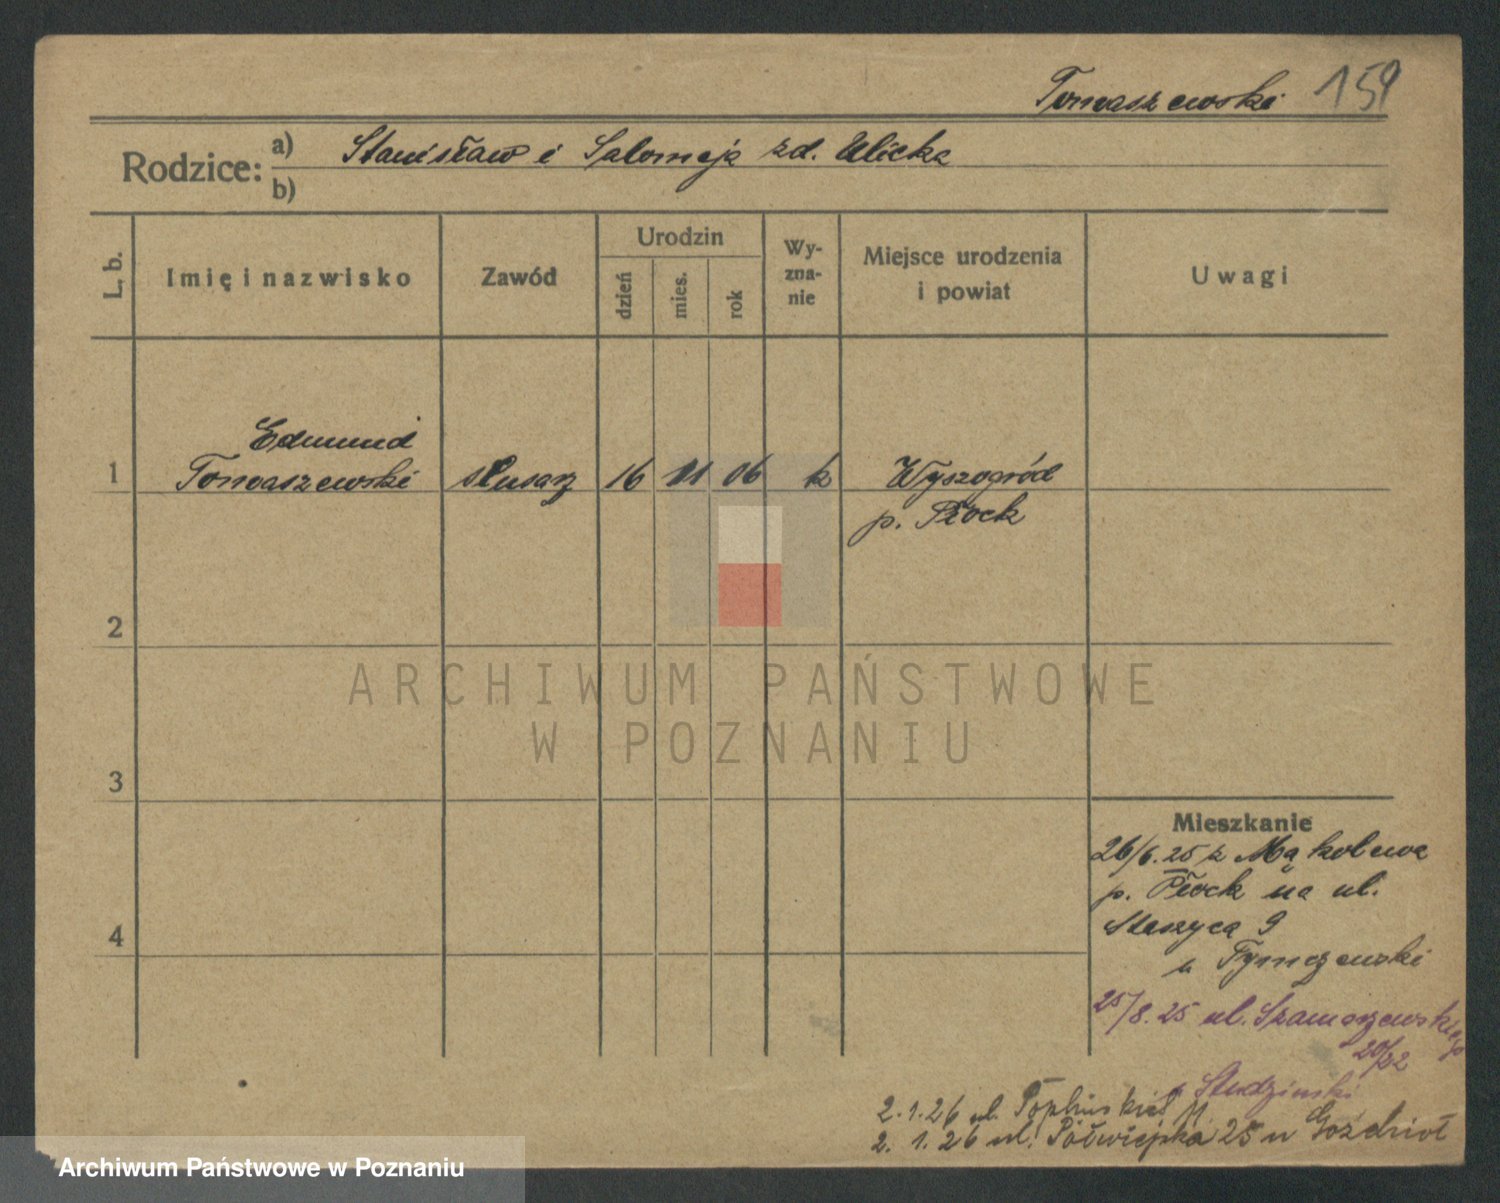 Tomaszewski 159
Rodzice: a) Stanisław i Salomeja zd. Ulicka
b)
L. b. Imię i nazwisko Zawód Urodzin dzień mies. rok Wy-zna-nie Miejsce urodzenia i powiat Uwagi
Edmund
1 Tomaszewski ślusarz 16 11 06 k Wyszogród
p. Płock
2
3
4
Mieszkanie
26/6.25 z Mąkolewa
p. Płock na ul.
Staszyca 9
u Tymczewski
25/8.25 ul. Szamarzewskiego
20/22
Studzinski
2.1.26 ul.
2. 1.26 ul. Półwiejska 25 u
ARCHIWUM PAŃSTWOWE
W POZNANIU
Archiwum Państwowe w Poznaniu